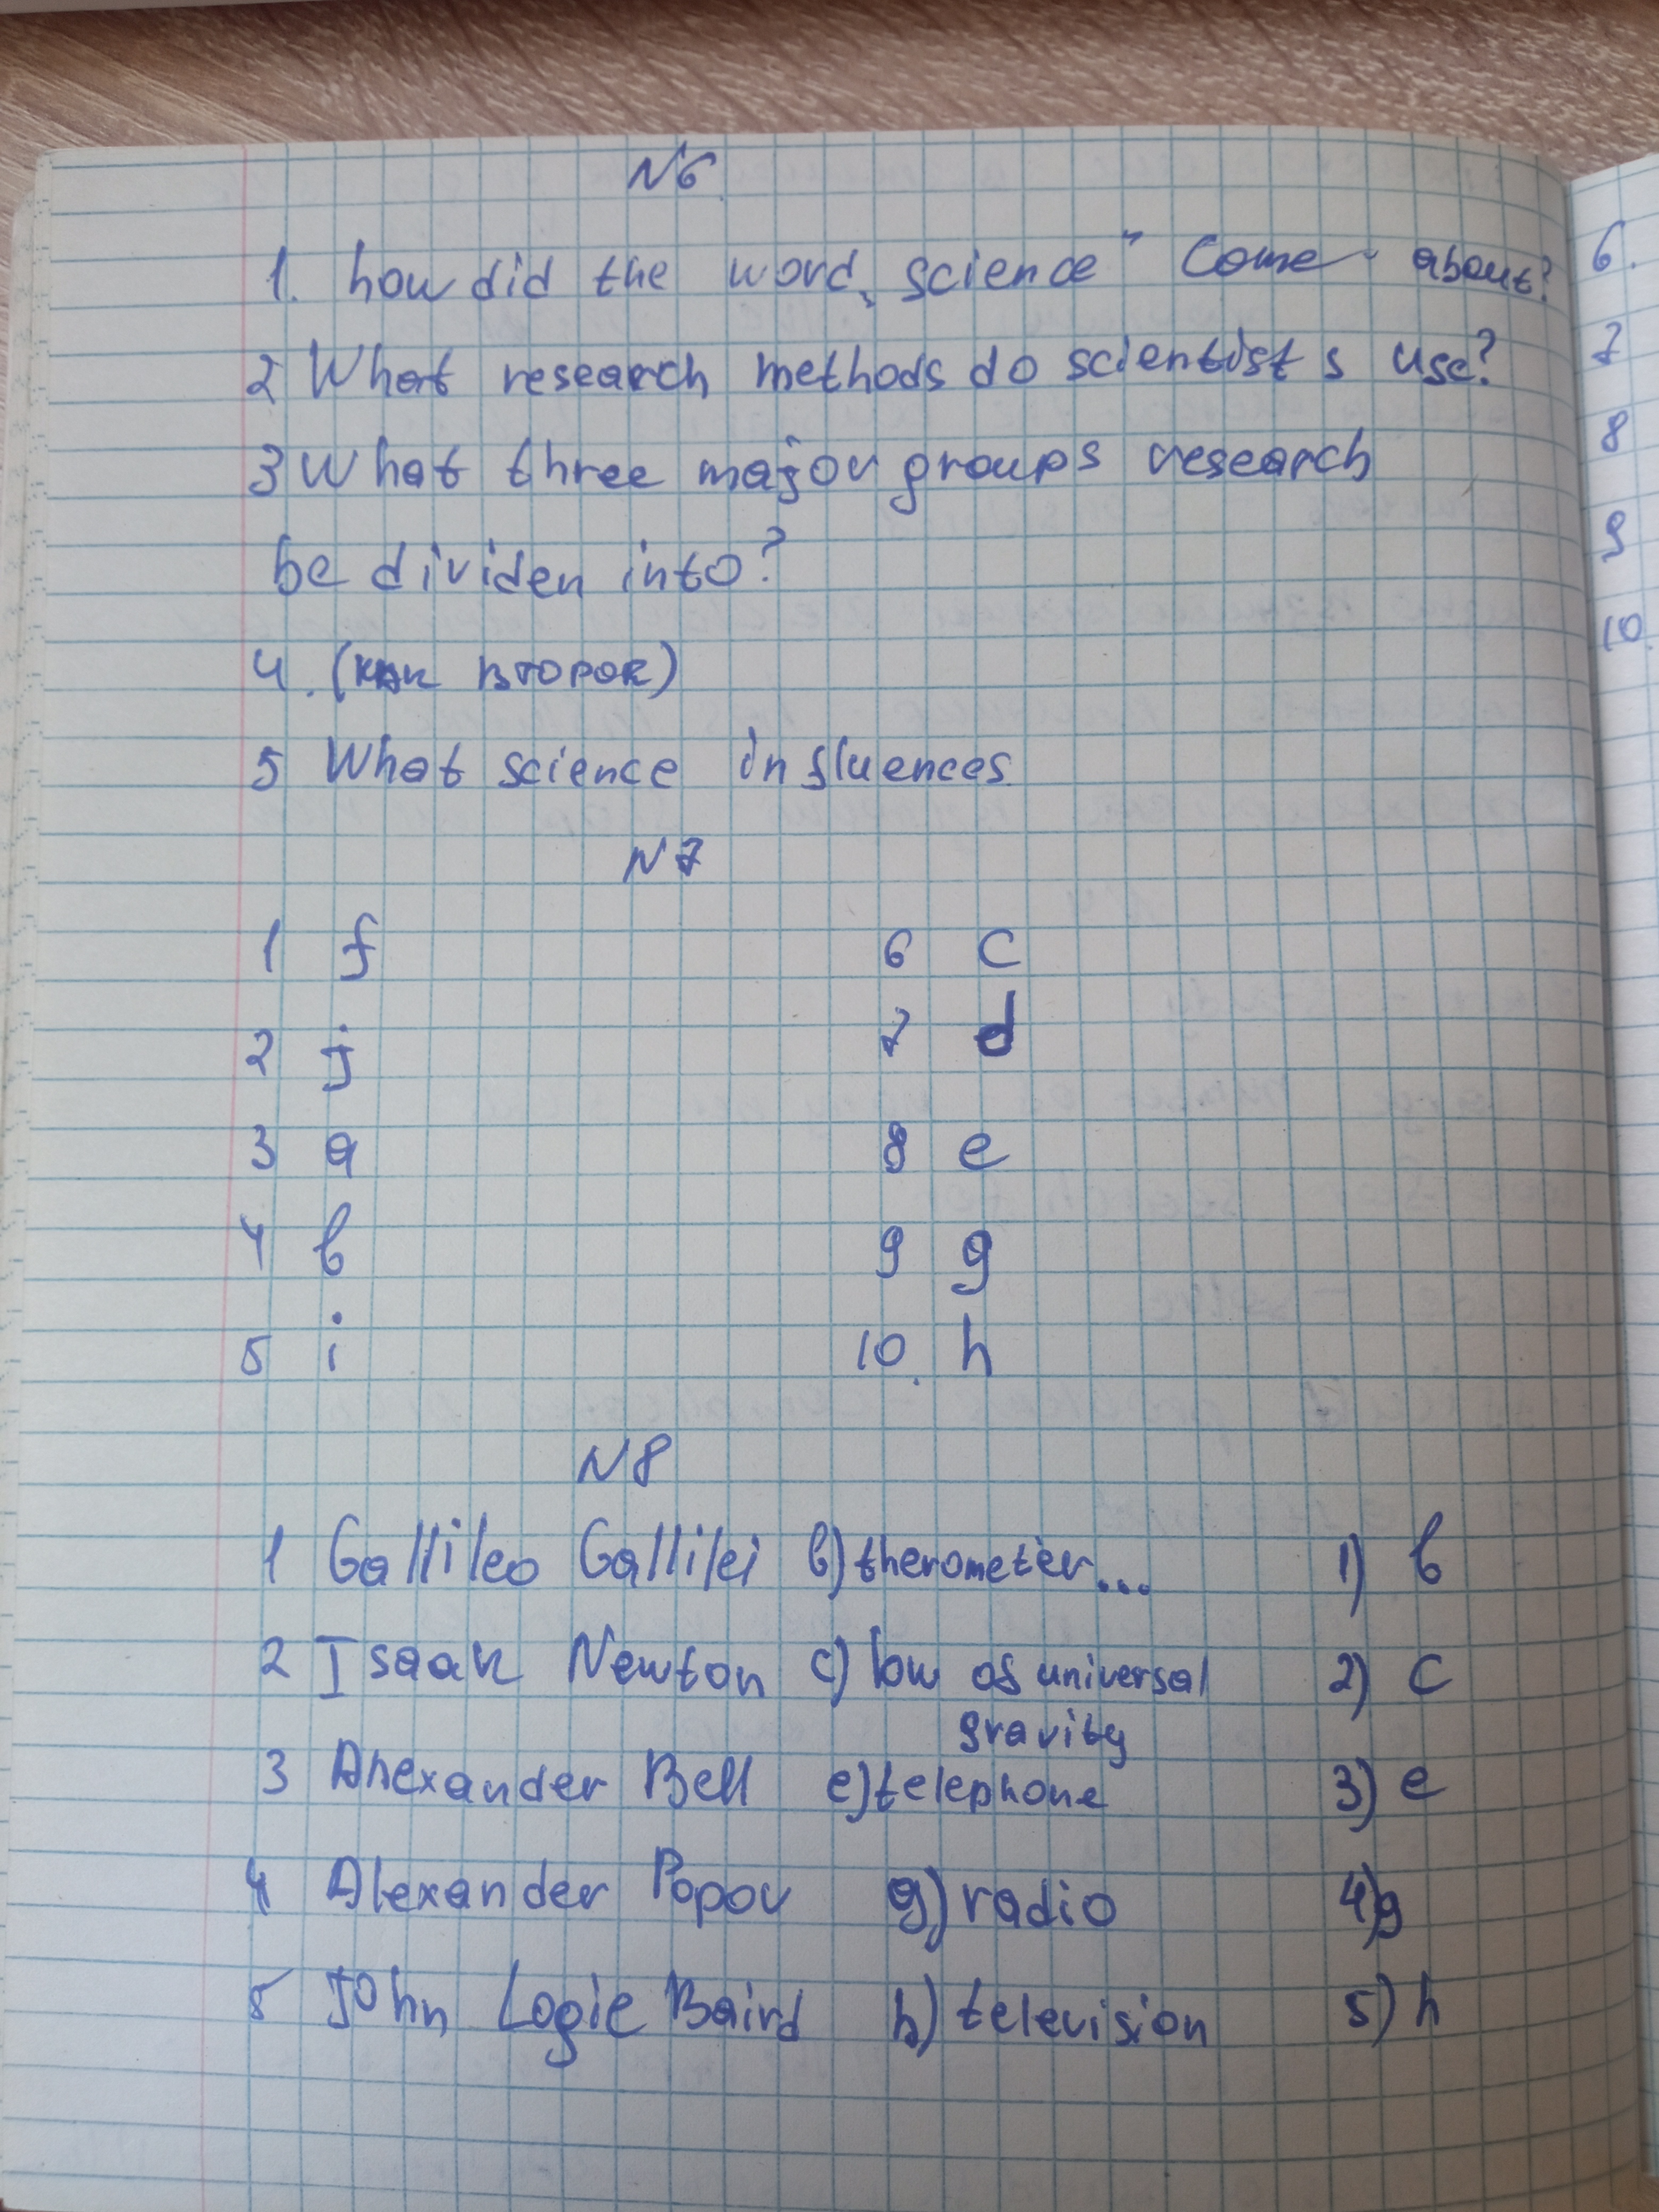 N6
1. how did the word „science" Come about?
2 What research methods do scientists use?
3 What three major groups research
be dividen into?
4. (как второк)
5 What science influences
N7
1 f
2 j
3 a
4 b
5 i
6 c
7 d
8 e
9 g
10. h
N8
1 Gallileo Gallilei b) therometer... 1) b
2 Isaak Newton c) low of universal gravity 2) c
3 Alexander Bell e) telephone 3) e
4 Alexander Popov g) radio 4) g
5 John Logie Baird h) television 5) h
6.
7
8
9
10.